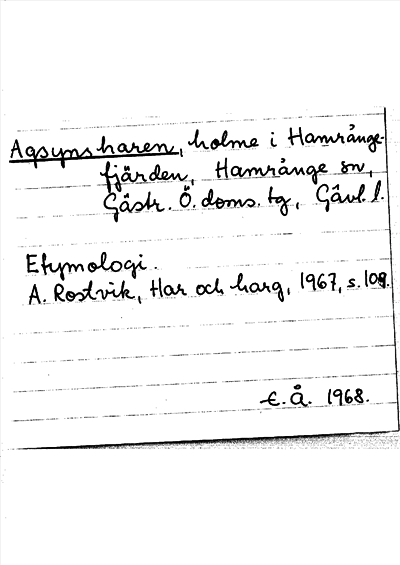 Agsynsharen, holme i Hamrånge-
fjärden, Hamrånge sn,
Gästr. Ö. doms. tg, Gävl. l.
Etymologi.
A. Rostvik, Har och harg, 1967, s. 108.
E. Å. 1968.